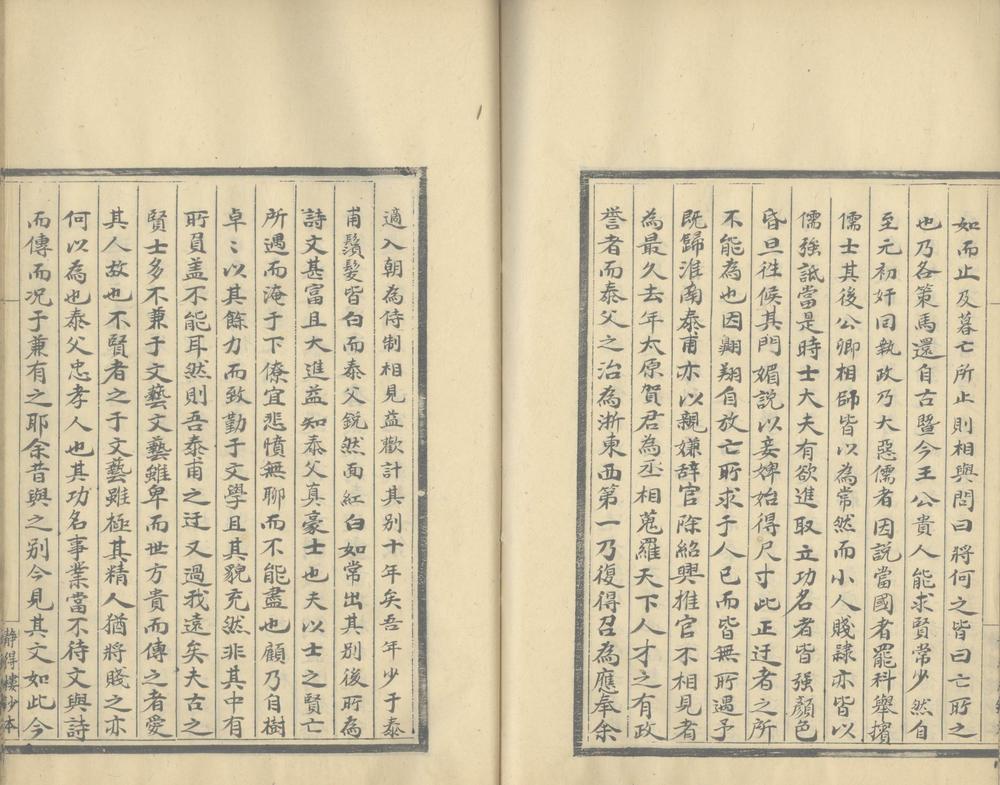 如而止及暮亡所止則相與問曰將何之皆曰亡所之
也乃各策馬還自古暨今王公貴人能求賢常少然自
至元初奸回執政乃大惡儒者因說當國者罷科舉擯
儒士其後公卿相師皆以為常然而小人賤隸亦皆以
儒強詆當是時士大夫有欲進取立功名者皆強顏色
昏旦徃候其門媚說以妾婢始得尺寸此正迂者之所
不能為也因翺翔自放亡所求于人已而皆無所遇予
既歸淮南泰甫亦以親嫌辞官除紹興推官不相見者
為最久去年太原賀君為丞相蒐羅天下人才之有政
誉者而泰父之治為浙東西第一乃復得召為應奉余
適入朝為侍制相見益歡計其别十年矣吾年少于泰
甫鬚髮皆白而泰父銳然面紅白如常出其别後所為
詩文甚富且大進益知泰父真豪士也夫以士之賢亡
所遇而淹于下僚宜悲憤無聊而不能盡也顧乃自樹
卓〻以其餘力而致勤于文學且其貌充然非其中有
所負盖不能耳然則吾泰甫之迂又過我遠矣夫古之
賢士多不兼于文藝文藝雖卑而世方貴而傳之者愛
其人故也不賢者之于文藝雖極其精人猶將賤之亦
何以為也泰父忠孝人也其功名事業當不待文與詩
而傳而况于兼有之耶余昔與之别今見其文如此今
靜得樓鈔本